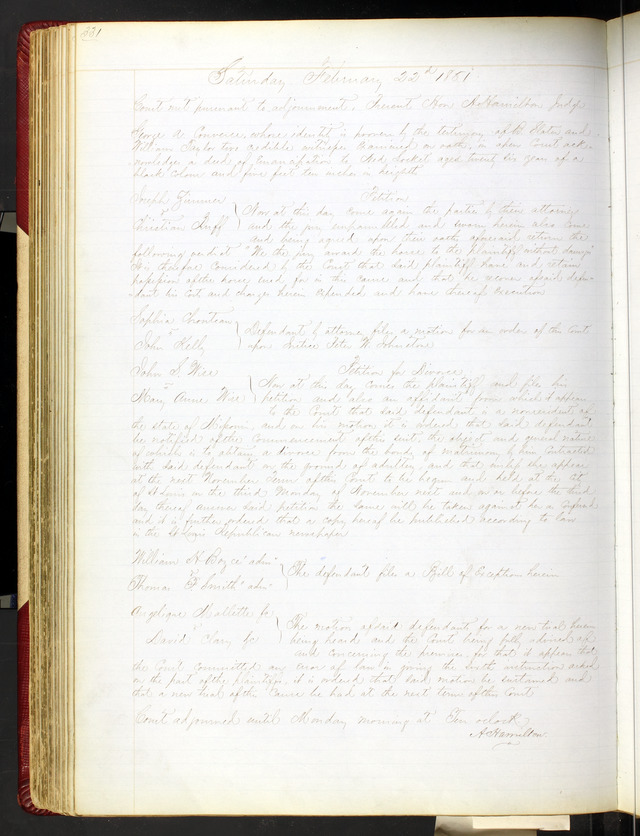 331
Saturday February 22d 1851
Court met pursuant to adjournment. Present Hon A Hamilton Judge
George A Converse, whose identity is proven by the testimony of B Slater and
William Taylor two credible witnesses examined on oath, in open Court ack-
nowledges a deed of Emancipation to aged twenty six years of a
black colour and five feet ten inches in height
Joseph
vs
Christian
Petition
Now at this day come again the parties by their attorneys
and the jury empannelled and sworn herein also come
and being agreed upon their oaths aforesaid return the
following verdict "We the jury award the horse to the Plaintiff without damage"
It is therefore considered by the Court that said plaintiff have and retain
possession of the horse sued for in this cause and that he recover of said defen-
dant his costs and charges herein expended and have thereof execution
Sophia Chouteau
vs
John Kelly
Defendant by attorney files a motion for an order of this Court
upon Peter W Johnstone
John S. Wise
vs
Mary Anne Wise
Petition for Divorce
Now at this day comes the plaintiff and files his
petition and also an affidavit from which it appears
to the Court that said defendant is a nonresident of
the state of Missouri, and on his motion it is ordered that said defendant
be notified of the commencement of this suit, the object and general nature
of which is to obtain a divorce from the bonds of matrimony by him contracted
with said defendant on the ground of adultery and that unless she appear
at the next November Term of this Court to be begun and held at the City
of St Louis on the third Monday of November next and on or before the third
day thereof answer said petition the same will be taken against her as confessed
and it is further ordered that a copy hereof be published according to law
in the St Louis Republican newspaper
William H Boyce adm
vs
Thomas F Smith adm
The defendant files a Bill of Exception herein
Angelique Mallette fc
vs
David Tary fc
The motion of said defendant for a new trial herein
being heard and the Court being fully advised of
and concerning the premises for that it appears that
the Court committed any error of law in giving the sixth instruction asked
on the part of the plaintiff it is ordered that said motion be sustained and
that a new trial of this Cause be had at the next term of this Court
Court adjourned until Monday morning at Ten oclock
A Hamilton